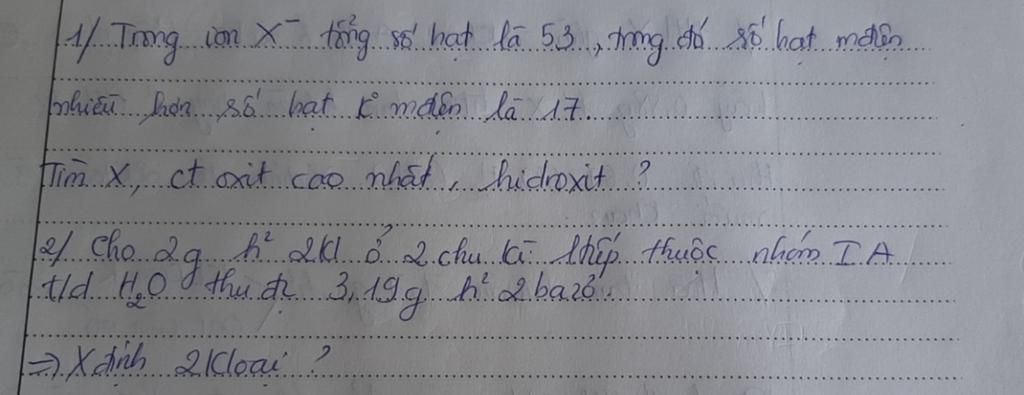 1/ Trong ion X⁻ tổng số hạt là 53, trong đó số hạt mđiện
nhiều hơn số hạt k° mđiện là 17.
Tìm X, ct oxit cao nhất, hidroxit ?
2/ Cho 2g h² 2Kl ở 2 chu kì thuộc nhóm IA
t/d H₂O thu đc 3,19g h² 2 bazơ.
=> Xđịnh 2Kloại ?